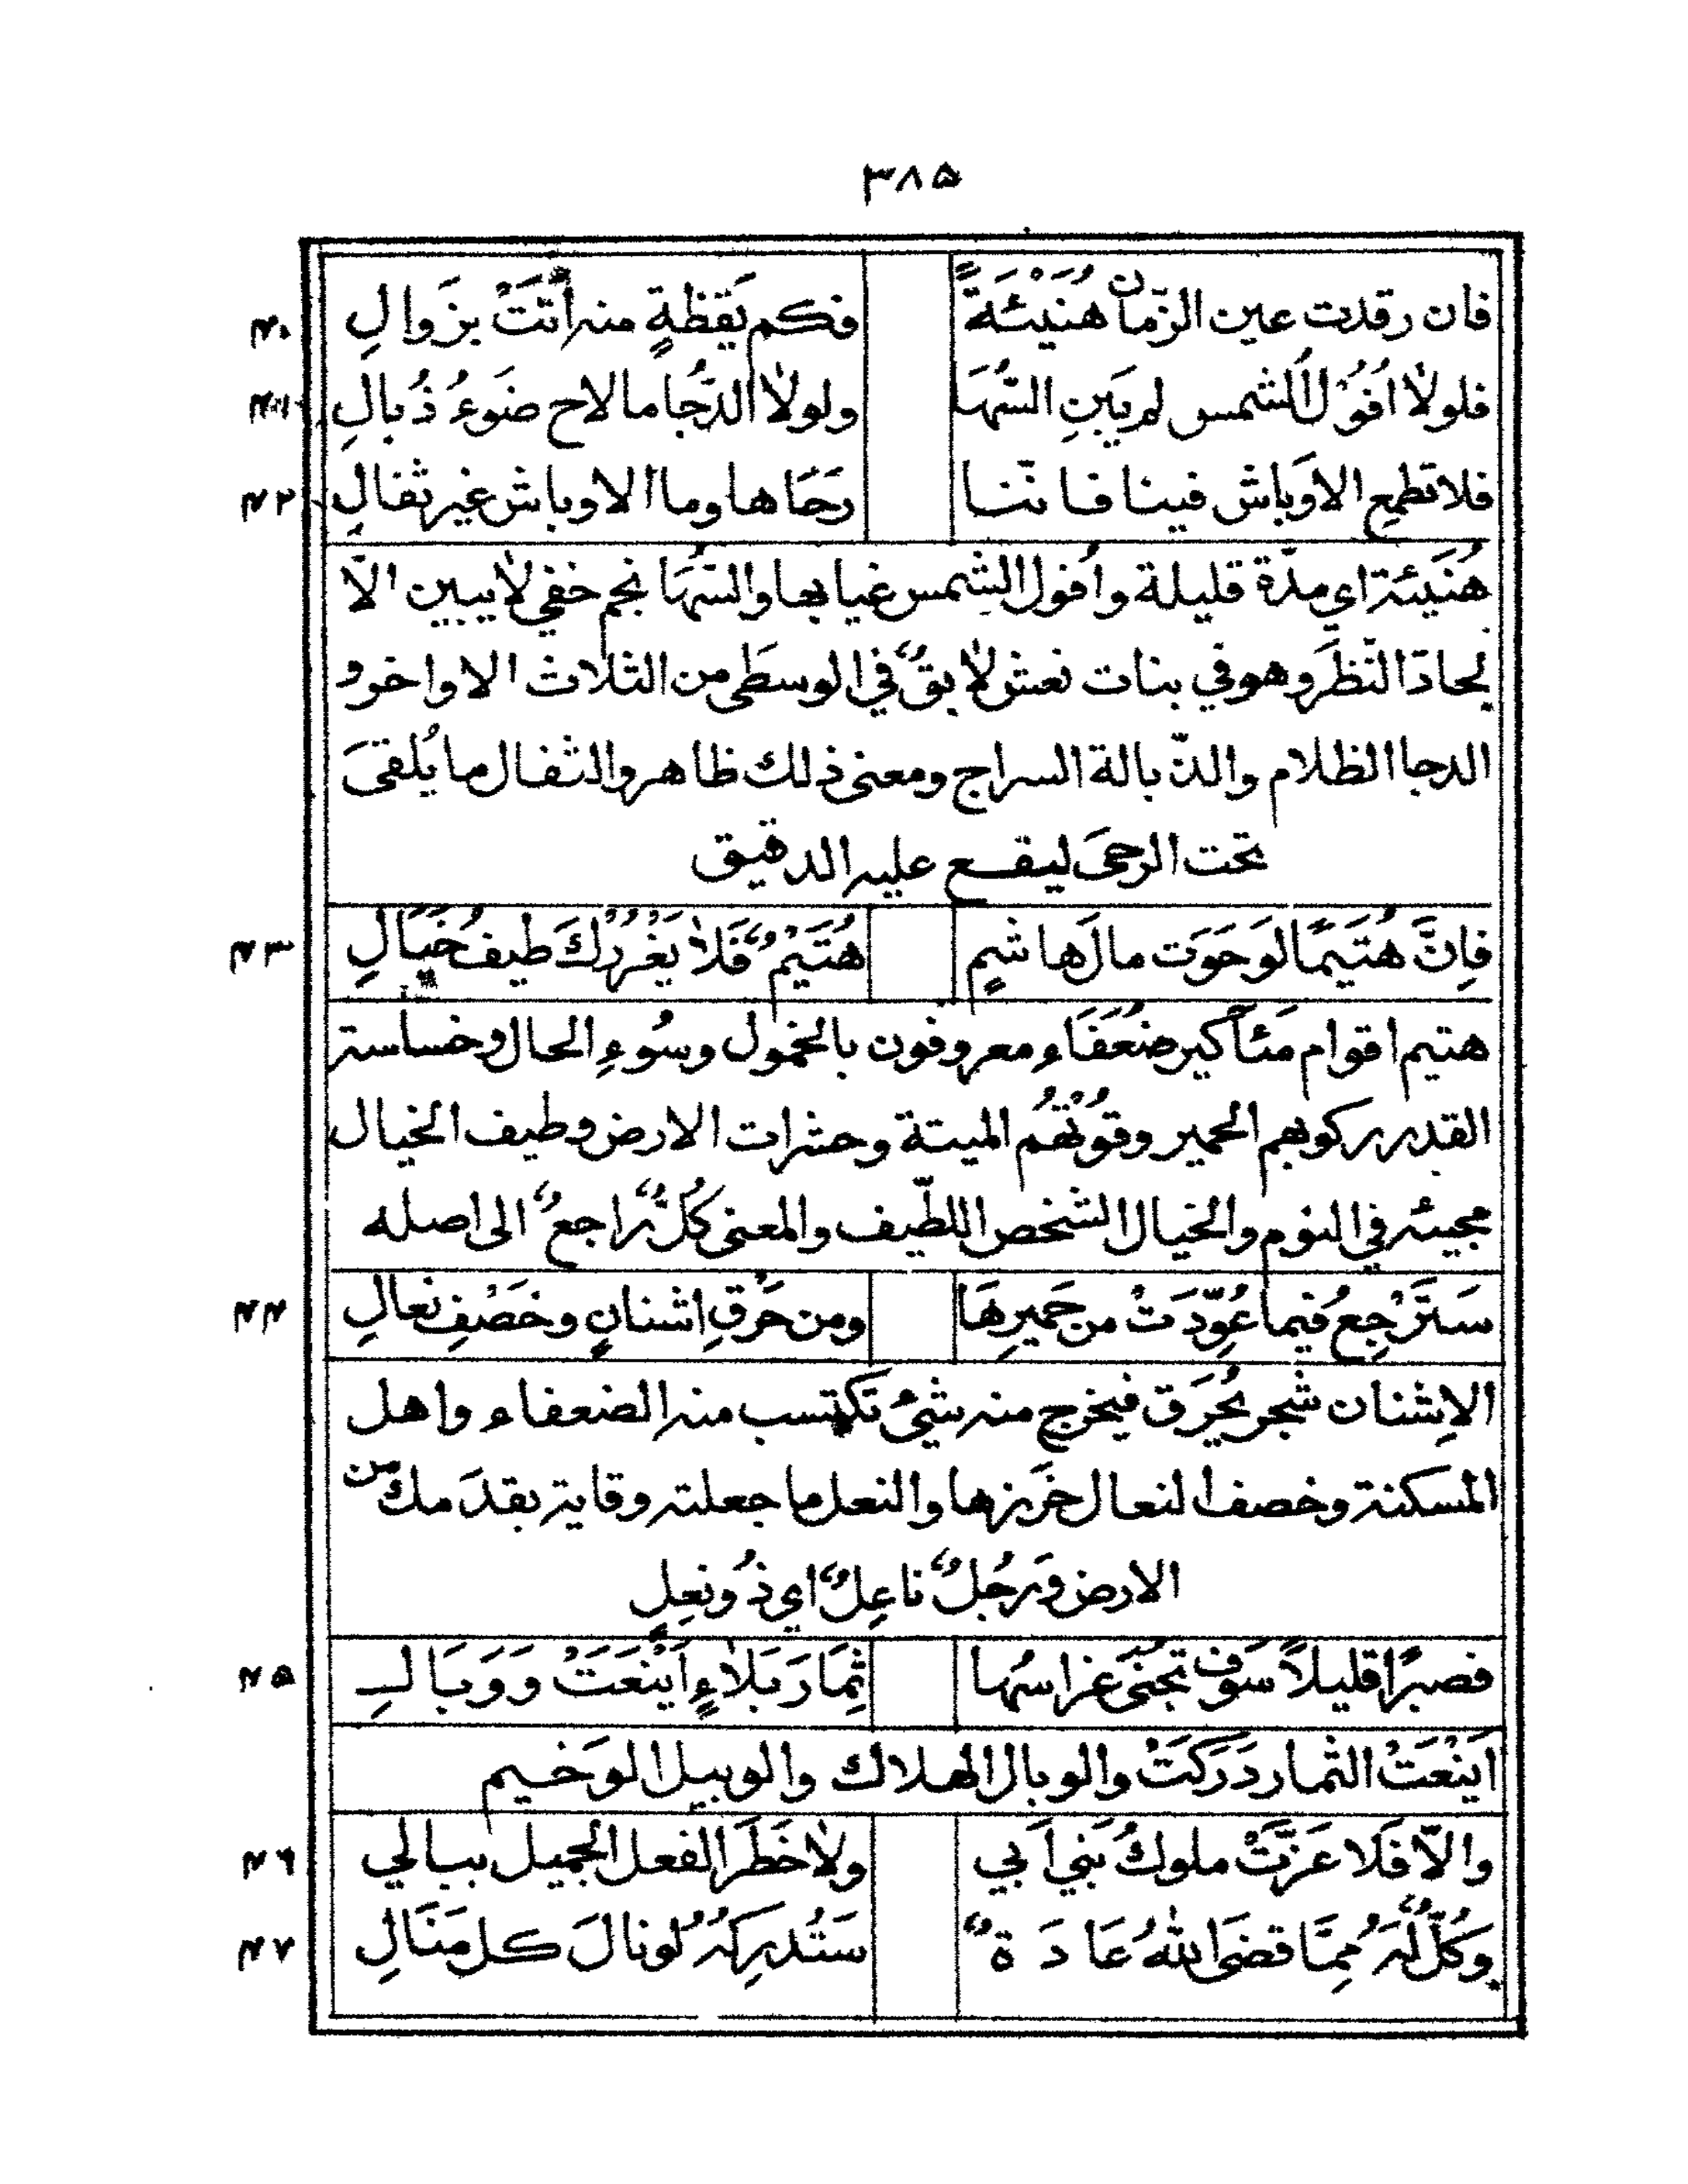 ٣٨۵
فان رقدت عين الزّمان هُنَيْئَةً فكم يَقظةٍ منه أتَتْ بزَوالِ ۴٠
فلولا اُفوُلُ الشمس لم يَبِنِ السُّهَا ولولا الدُّجا ما لاح ضَوءُ ذُبالِ ۴١
فلا تطمع الاَوباش فينا فاننا رَحَاها وما الاوباش غير ثفالِ ۴٢
هُنَيئة اي مدّة قليلة واُفول الشمس غيابها والسُّهَا نجم خفي لا يبين الاّ
لحادّ النّظَر وهو في بنات نعش في الوسطى من الثلاث الاواخر و
الدجا الظلام والذّبالة السراج ومعنى ذلك ظاهر والثفال ما يُلقىَ
تحت الرحىَ ليقع عليه الدقيق
فاِنَّ هُتَيمًا لو حَوَت مالَ هاشمٍ هُتَيْمٌ فَلا يَغْرُرْكَ طيفُ خَيَالِ ۴٣
هتيم اقوام ضُعَفَاء معروفون بالخمول وسُوءِ الحال وخساسة
القدر ركوبهم الحمير وقُوْتُهُم الميتة وحشرات الارض وطيف الخيال
مجيئه في النوم والخيال الشخص اللطيف والمعنى كُلٌّ راجعٌ الى اصله
سَتَرْجِعُ فيما عُوِّدَتْ من حَميرِهَا ومن حَرْقِ اِشنانٍ وخَصْفِ نعالِ ۴۴
الاِشنان شجر يُحرَق فيخرج منه شيئٌ تكتسب منه الضعفاء واهل
المسكنة وخصف النعال خَرزها والنعل ما جعلته وقاية بقدَمك من
الارض ورَجُلٌ ناعِلٌ اي ذُو نعلٍ
فصبرًا قليلاً سَوف تُجنَى غراسُها ثِمَارَ بَلاءٍ اَيْنَعَتْ وَوَبَالِ ۴۵
اَيْنَعَتْ الثمار دَرَكَتْ والوبال الهلاك والوبيل الوَخيم
والاّ فَلا عَزَّتْ ملوكُ بَني اَبي ولا خَطَرَ الفعل الجميل ببالي ۴۶
وَكُلٌّ لَهُ مِمَّا قضَى اللهُ عَادَةٌ سَتُدرِكهُ لو نالَ كل مَنَالِ ۴٧